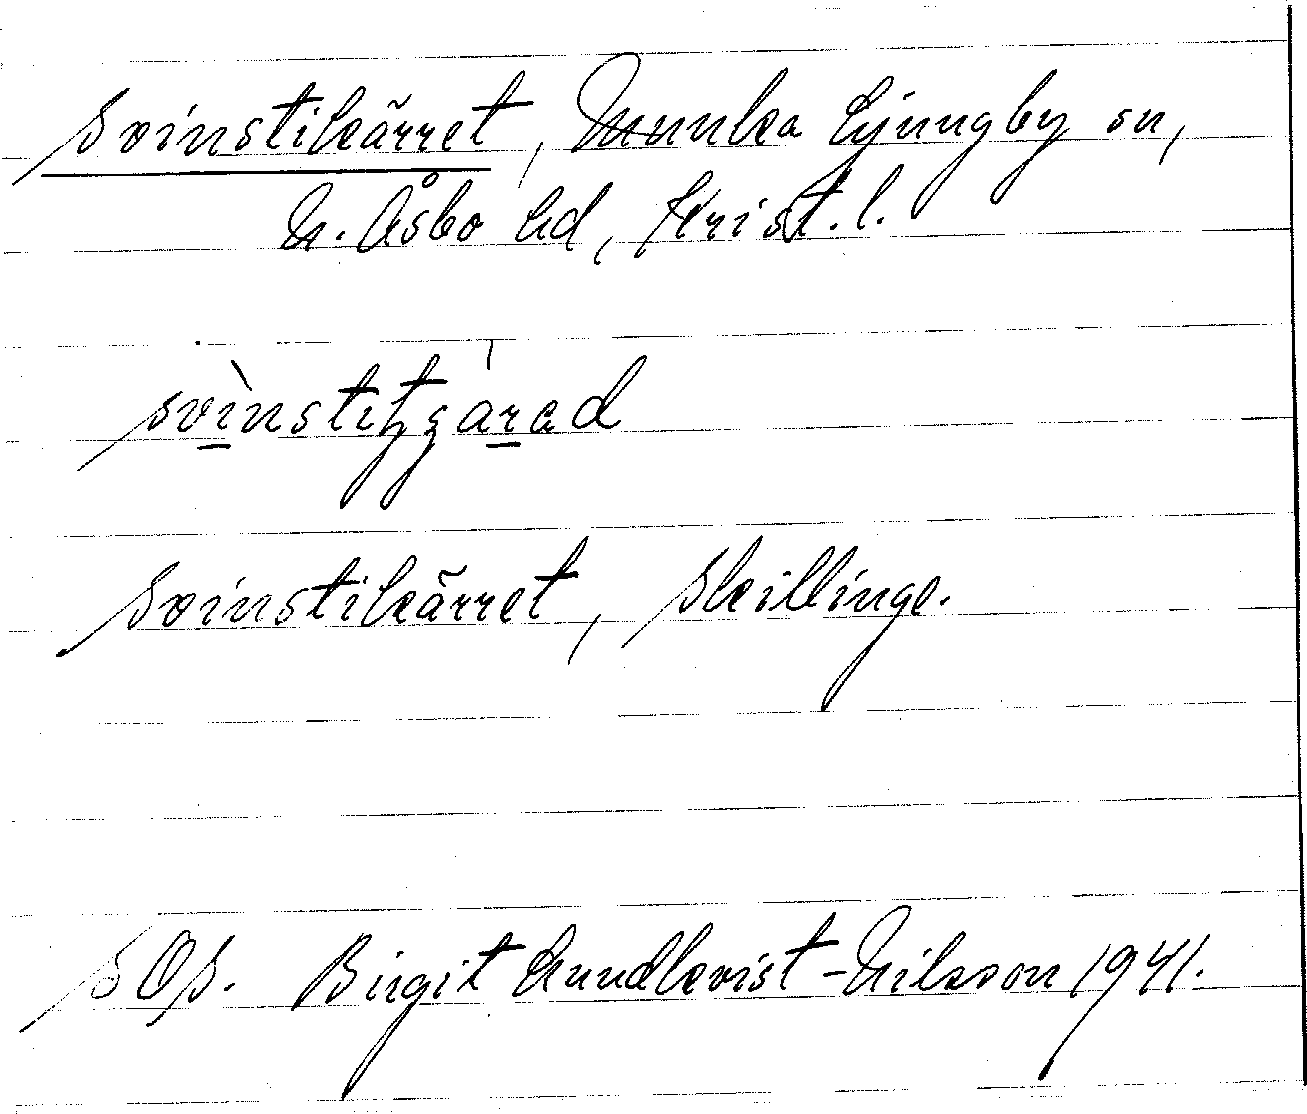 Svinstikärret, Munka Ljungby sn,
N. Åsbo hd, Krist. l.
Svinstikärret, Skillinge.
SOS. Birgit Lundkvist-Nilsson 1941.